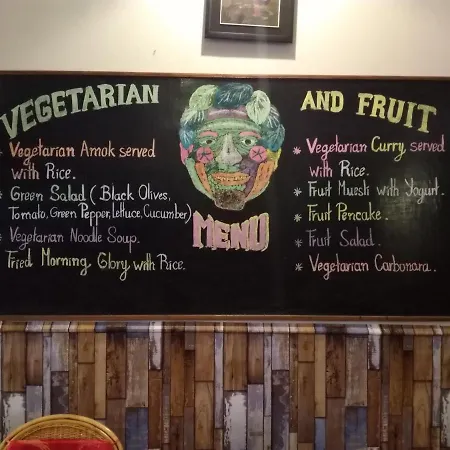 VEGETARIAN
* Vegetarian Amok served
with Rice.
* Green Salad ( Black Olives,
Tomato, Green Pepper, Lettuce, Cucumber)
* Vegetarian Noodle Soup.
Fried Morning Glory with Rice.
MENU
AND FRUIT
* Vegetarian Curry, served
with Rice.
* Fruit Muesli with Yogurt.
* Fruit Pencake.
* Fruit Salad.
* Vegetarian Carbonara.